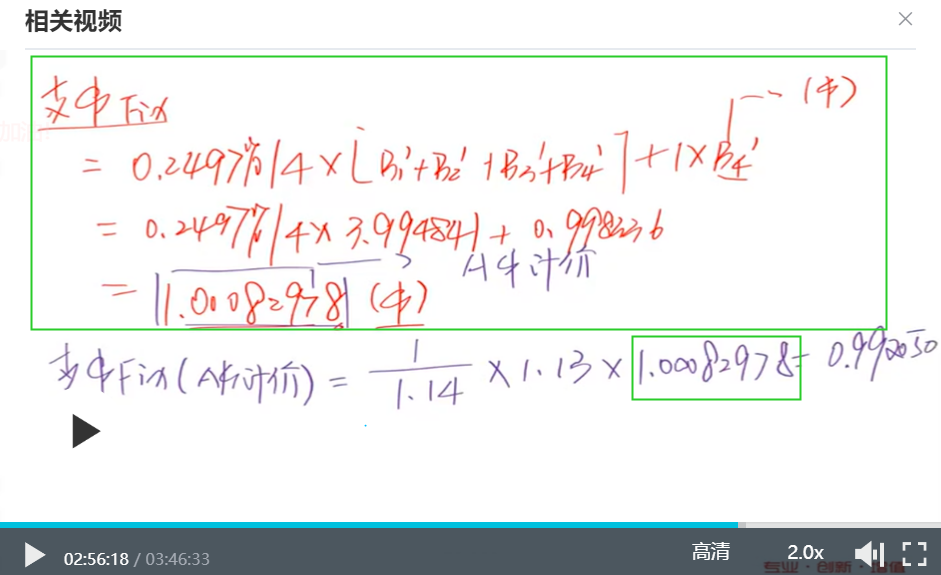 相关视频
支中Fix
= 0.2497%/4×[B₁'+B₂'+B₃'+B₄']+1×B₄' (中)
= 0.2497%/4×3.99484+0.998236
A本计价
= 1.00082978 (中)
支中Fix(A本计价) = 1/1.14 × 1.13 × 1.00082978 = 0.992050
02:56:18 / 03:46:33
高清
2.0x
专业·创新·增值